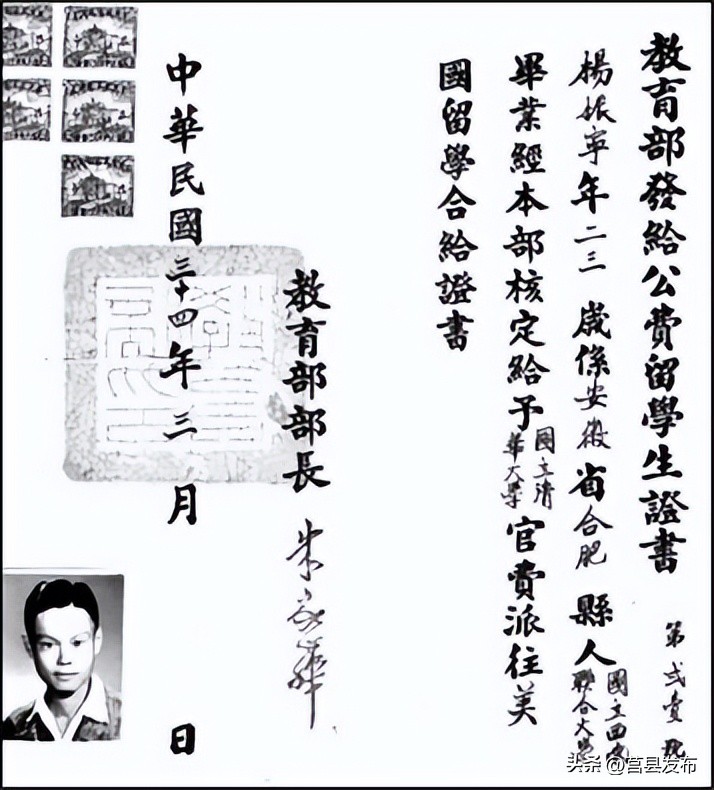 教育部發給公費留學生證書
第貳壹號
楊振寧年二三歲係安徽省合肥縣人國立西南聯合大學
畢業經本部核定給予國立清華大學官費派往美
國留學合給證書
教育部部長 朱家驊
中華民國三十四年三月 日
头条 @莒县发布